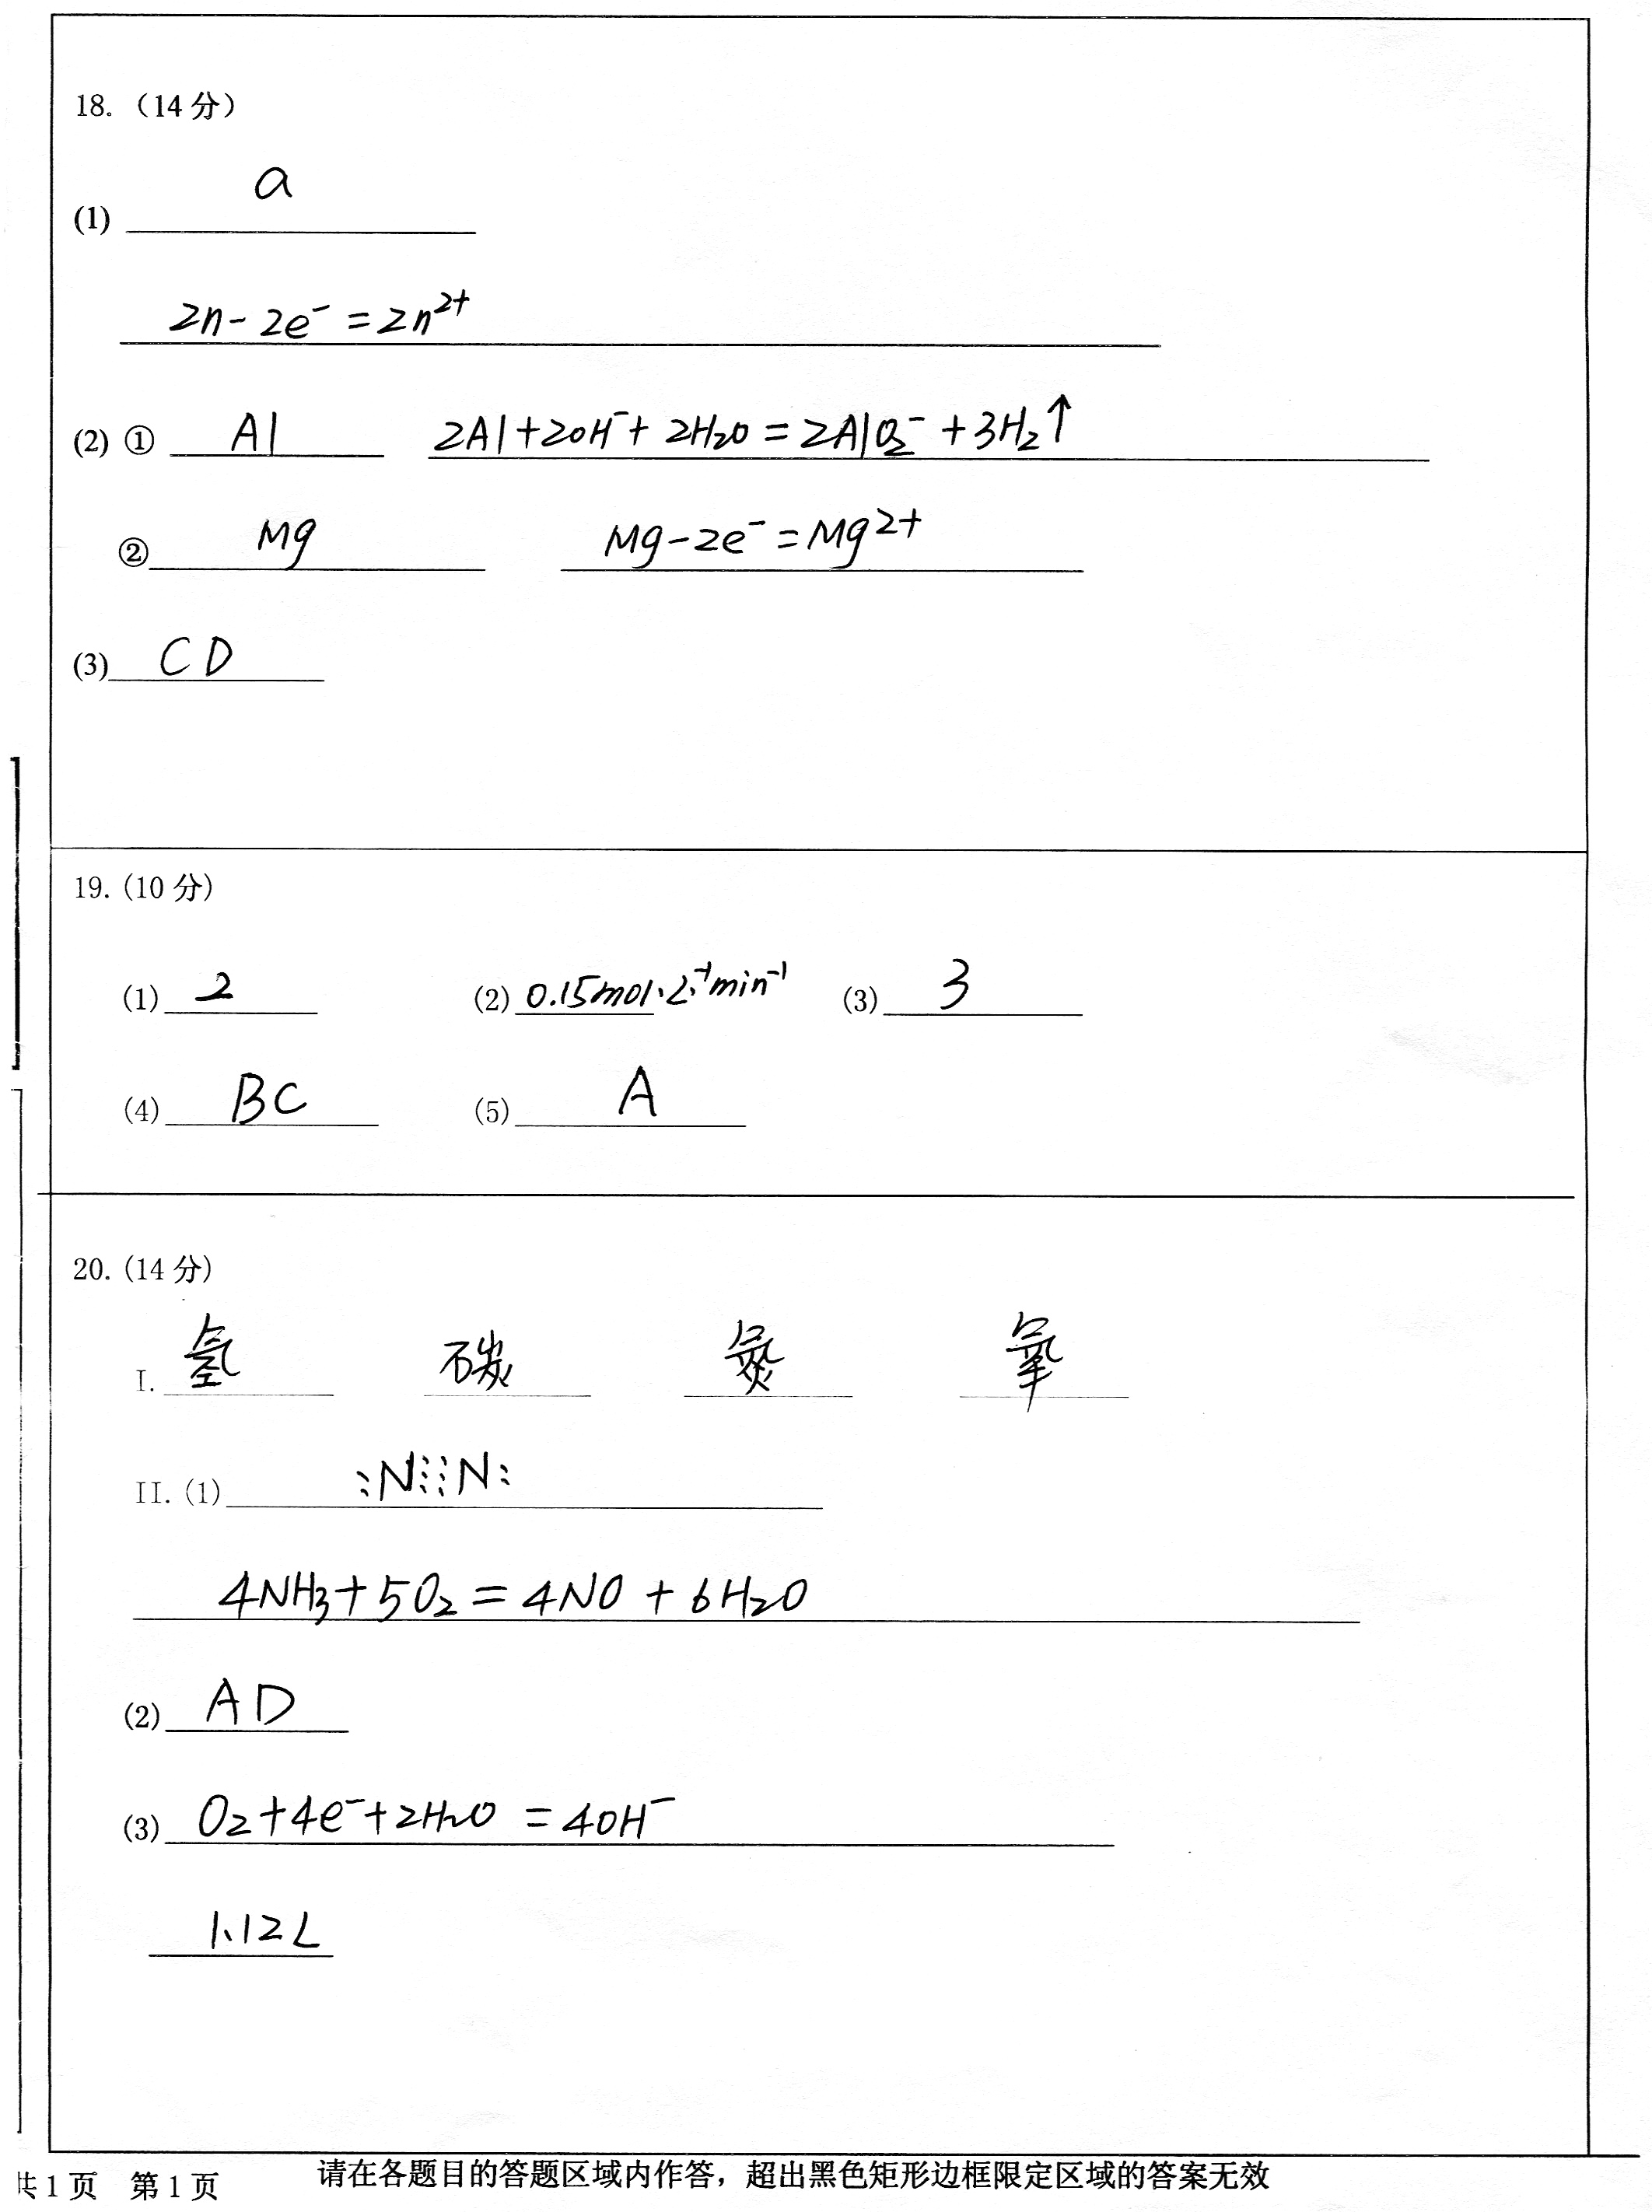 18.（14 分）
(1) a
2n-2e⁻=2n²⁺
(2) ① Al 2Al+2OH⁻+2H₂O=2AlO₂⁻+3H₂↑
② Mg Mg-2e⁻=Mg²⁺
(3) CD
19.(10 分)
(1) 2 (2) 0.15mol·L⁻¹·min⁻¹ (3) 3
(4) BC (5) A
20.(14 分)
I. 氢 碳 氮 氧
II.(1) :N⋮⋮N:
4NH₃+5O₂=4NO+6H₂O
(2) AD
(3) O₂+4e⁻+2H₂O=4OH⁻
1.12L
共 1 页 第 1 页 请在各题目的答题区域内作答，超出黑色矩形边框限定区域的答案无效